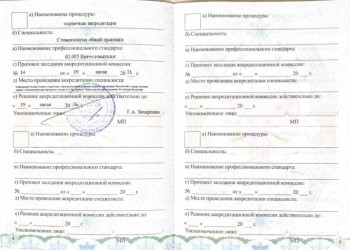 а) Наименование процедуры:
первичная аккредитация
б) Специальность:
Стоматология общей практики
в) Наименование профессионального стандарта:
02.005 Врач-стоматолог
г) Протокол заседания аккредитационной комиссии:
№ 14 от « 19 » июля 20 21 г.
д) Место проведения аккредитации специалиста:
е) Решение аккредитационной комиссии действительно до:
« 19 » июля 20
Уполномоченное лицо: Т.А. Захаренко
МП
а) Наименование процедуры:
б) Специальность:
в) Наименование профессионального стандарта:
г) Протокол заседания аккредитационной комиссии:
№ от « » 20 г.
д) Место проведения аккредитации специалиста:
е) Решение аккредитационной комиссии действительно до:
« » 20 г.
Уполномоченное лицо:
МП
а) Наименование процедуры:
б) Специальность:
в) Наименование профессионального стандарта:
г) Протокол заседания аккредитационной комиссии:
№ от « » 20 г.
д) Место проведения аккредитации специалиста:
е) Решение аккредитационной комиссии действительно до:
« » 20 г.
Уполномоченное лицо:
МП
а) Наименование процедуры:
б) Специальность:
в) Наименование профессионального стандарта:
г) Протокол заседания аккредитационной комиссии:
№ от « » 20 г.
д) Место проведения аккредитации специалиста:
е) Решение аккредитационной комиссии действительно до:
« » 20 г.
Уполномоченное лицо:
МП